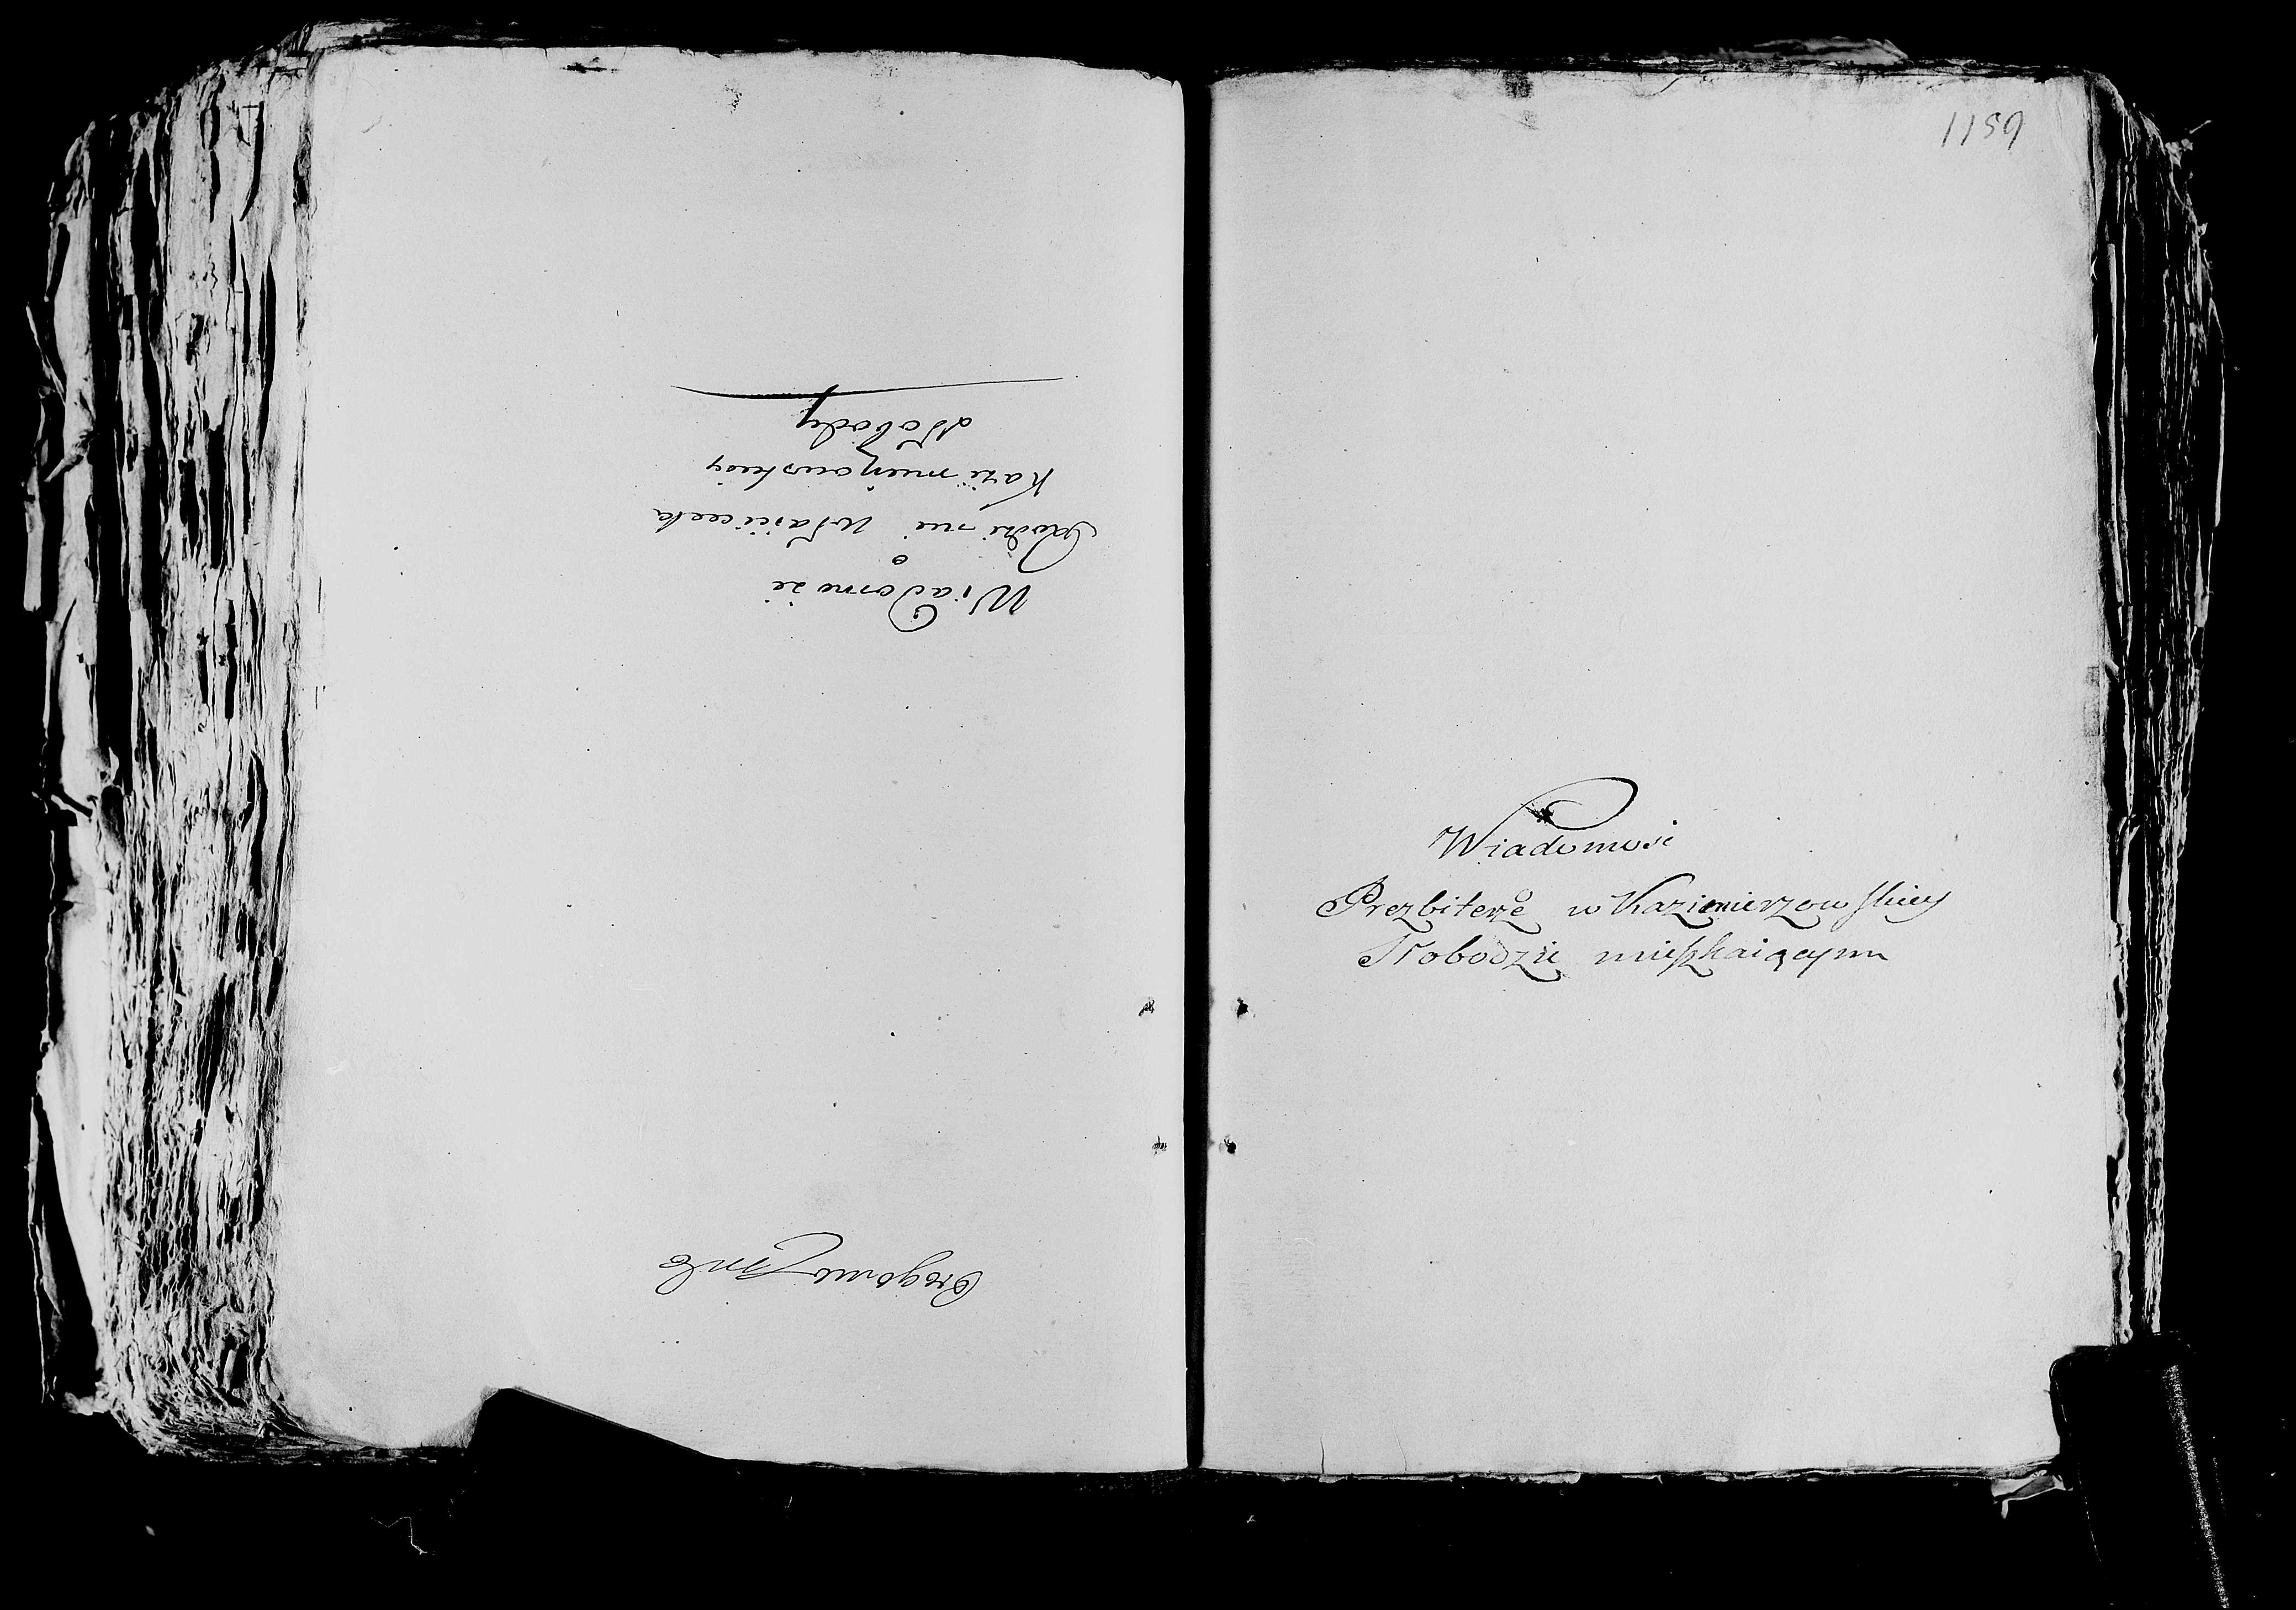 Wiadomość
o
Rodzinie Właściciela
Kazimierzowskiey
Słobody
1159
Wiadomość
o
Prezbiterze w Kazimierzowskiey
Słobodzie mieszkaiącym